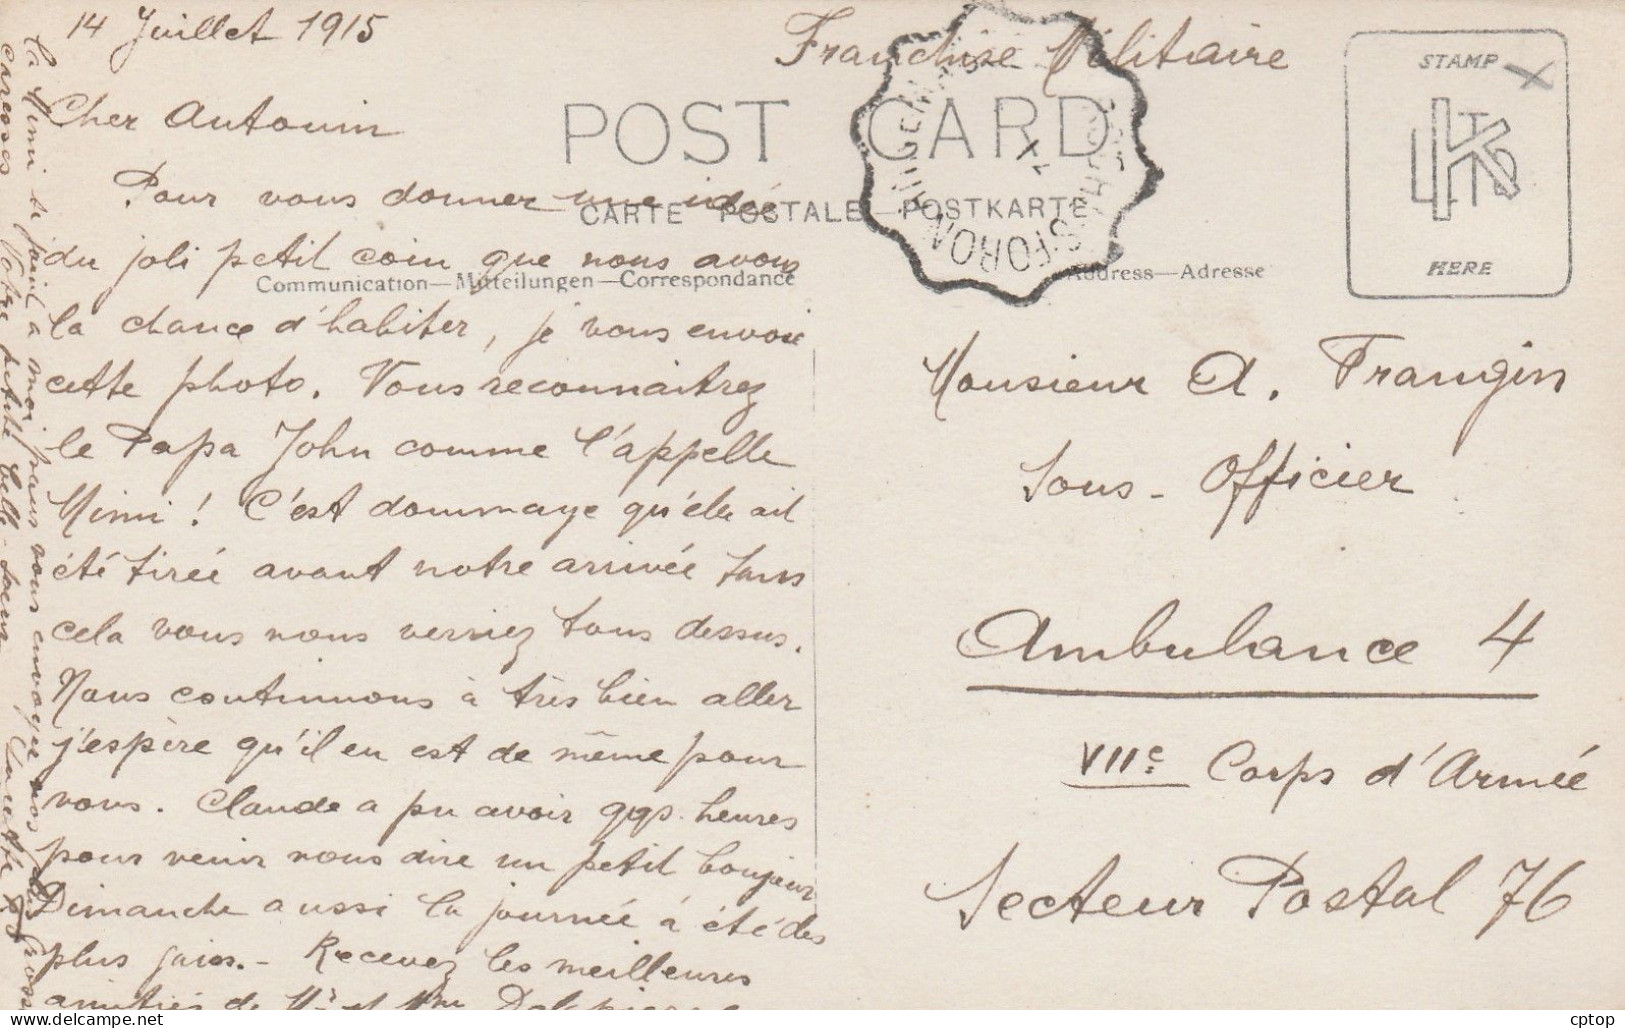 14 Juillet 1915
Franchise Militaire
STAMP
HERE
POST CARD
CARTE POSTALE—POSTKARTE
Communication—Mitteilungen—Correspondance
Address—Adresse
Cher Antonin
Pour vous donner une idée
du joli petit coin que nous avons
la chance d'habiter, je vous envoie
cette photo. Vous reconnaitrez
le Papa John comme l'appelle
Mimi ! C'est dommage qu'elle ait
été tirée avant notre arrivée sans
cela vous nous verriez tous dessus.
Nous continuons à très bien aller
j'espère qu'il en est de même pour
vous. Claude a pu avoir qqs. heures
pour venir nous dire un petit bonjour
Dimanche aussi la journée à été des
plus gaies. - Recevez les meilleures
amitiés de Mr et Mme
La Mimi se joint à moi pour vous envoyer nos plus grosses
caresses Votre petite belle-soeur
Monsieur A. Frangin
Sous-Officier
Ambulance 4
VIIe Corps d'Armée
Secteur Postal 76
cptop